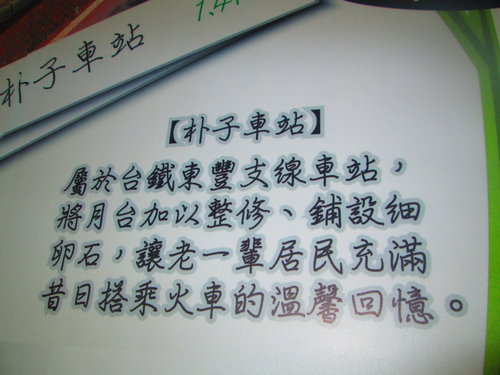 朴子車站
【朴子車站】
屬於台鐵東豐支線車站，
將月台加以整修、鋪設細
卵石，讓老一輩居民充滿
昔日搭乘火車的溫馨回憶。